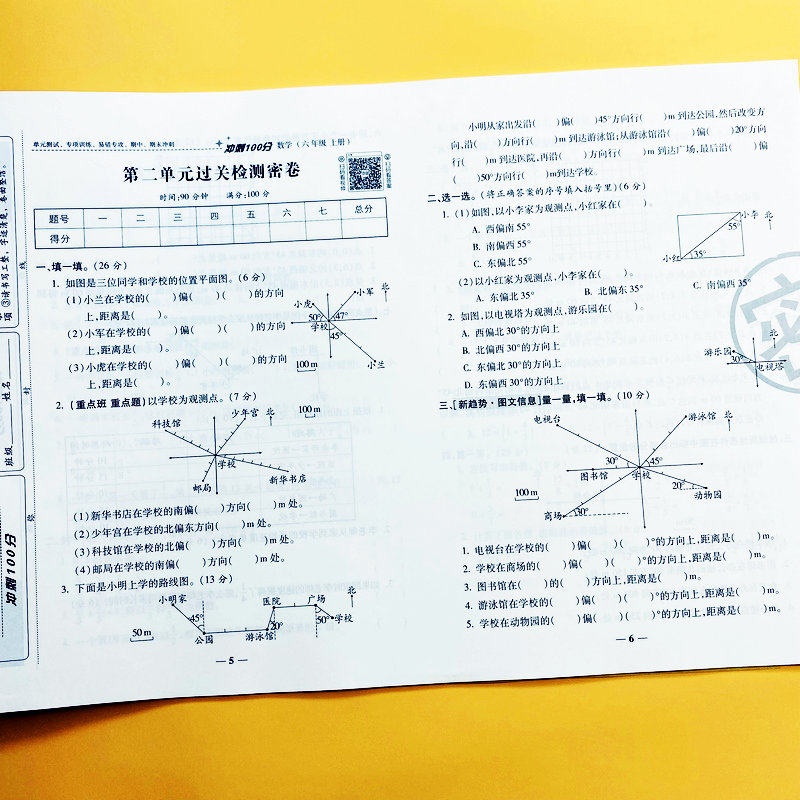 单元测试、专项训练、易错专攻、期中、期末冲刺
冲刺100分 数学(六年级 上册)
第二单元过关检测密卷
时间:90分钟 满分:100分
扫码看视频
扫码看答案
题号 一 二 三 四 五 六 七 总分
得分
一、填一填。(26分)
1. 如图是三位同学和学校的位置平面图。(6分)
(1)小兰在学校的( )偏( )( )的方向
上,距离是( )。
(2)小军在学校的( )偏( )( )的方向
上,距离是( )。
(3)小虎在学校的( )偏( )( )的方向
上,距离是( )。
小虎
小军
北
50°
47°
学校
45°
100 m
小兰
2. [重点班 重点题]以学校为观测点。(7分)
科技馆
少年宫
北
100 m
学校
邮局
新华书店
(1)新华书店在学校的南偏( )方向( )m处。
(2)少年宫在学校的北偏东方向( )m处。
(3)科技馆在学校的北偏( )方向( )m处。
(4)邮局在学校的南偏( )方向( )m处。
3. 下面是小明上学的路线图。(13分)
小明家
医院
广场
北
45°
20°
50°
学校
50 m
公园
游泳馆
— 5 —
小明从家出发沿( )偏( )45°方向行( )m到达公园,然后改变方
向,沿( )方向行( )m到达游泳馆;从游泳馆沿( )偏( )20°方向
行( )m到达医院,再沿( )方向行( )m到达广场,最后沿( )偏
( )50°方向行( )m到达学校。
二、选一选。(将正确答案的序号填入括号里)(6分)
1. (1)如图,以小李家为观测点,小红家在( )。
A. 西偏南55°
B. 南偏西55°
C. 东偏北55°
小李
北
55°
小红
35°
(2)以小红家为观测点,小李家在( )。
A. 东偏北35° B. 北偏东35° C. 南偏西35°
2. 如图,以电视塔为观测点,游乐园在( )。
A. 西偏北30°的方向上
B. 北偏西30°的方向上
C. 东偏北30°的方向上
D. 东偏西30°的方向上
北
游乐园
30°
电视塔
三、[新趋势·图文信息]量一量,填一填。(10分)
电视台
游泳馆
北
30°
45°
图书馆
学校
100 m
20°
动物园
商场
30°
1. 电视台在学校的( )偏( )( )°的方向上,距离是( )m。
2. 学校在商场的( )偏( )( )°的方向上,距离是( )m。
3. 图书馆在( )的( )方向上,距离是( )m。
4. 游泳馆在学校的( )偏( )( )°的方向上,距离是( )m。
5. 学校在动物园的( )偏( )( )°的方向上,距离是( )m。
— 6 —
③请书写工整、字迹清楚,卷面整洁。
项
线
姓名
封
班级
密
冲刺100分
密